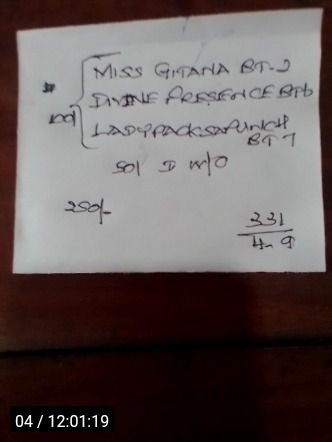 MISS GITANA BT-2
DIVINE PRESENCE BT6
100/ LADYPACKSAPUNCH
BT 7
50/ I W/O
250/-
331
4-9
04 / 12:01:19